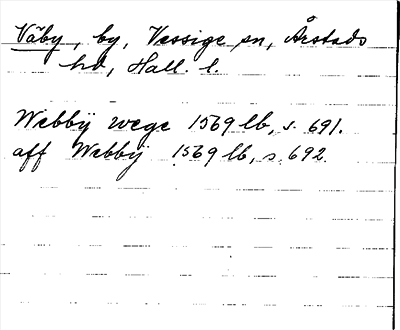 Väby, by, Vessige sn, Årstads
hd, Hall. l.
Webbÿ wege 1569 lb, s. 691.
aff Webbÿ 1569 lb, s. 692.